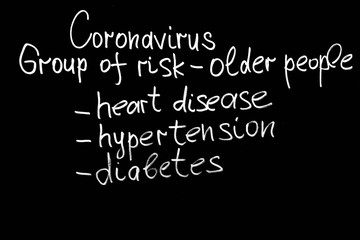 Coronavirus
Group of risk - older people
- heart disease
- hypertension
- diabetes